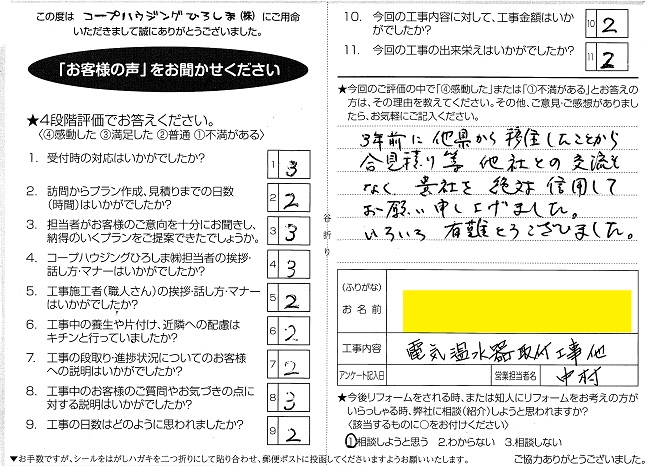 この度は コープハウジングひろしま(株) にご用命
いただきまして誠にありがとうございました。
「お客様の声」をお聞かせください
★4段階評価でお答えください。
〈④感動した ③満足した ②普通 ①不満がある〉
1. 受付時の対応はいかがでしたか?
1 3
2. 訪問からプラン作成、見積りまでの日数
(時間)はいかがでしたか?
2 2
3. 担当者がお客様のご意向を十分にお聞きし、
納得のいくプランをご提案できたでしょうか。
3 3
4. コープハウジングひろしま㈱担当者の挨拶・
話し方・マナーはいかがでしたか?
4 3
5. 工事施工者(職人さん)の挨拶・話し方・マナー
はいかがでしたか?
5 2
6. 工事中の養生や片付け、近隣への配慮は
キチンと行っていましたか?
6 2
7. 工事の段取り・進捗状況についてのお客様
への説明はいかがでしたか?
7 2
8. 工事中のお客様のご質問やお気づきの点に
対する説明はいかがでしたか?
8 3
9. 工事の日数はどのように思われましたか?
9 2
▼お手数ですが、シールをはがしハガキを二つ折りにして貼り合わせ、郵便ポストに投函してくださいますようお願いいたします。
谷折り
10. 今回の工事内容に対して、工事金額はいか
がでしたか?
10 2
11. 今回の工事の出来栄えはいかがでしたか?
11 2
★今回のご評価の中で「④感動した」または「①不満がある」とお答えの
方は、その理由を教えてください。その他、ご意見・ご感想がありまし
たら、お気軽にご記入ください。
3年前に他県から移住したことから
合見積り等 他社との交流も
なく 貴社を絶対信用して
お願い申し上げました。
いろいろ有難とうございました。
(ふりがな)
お名前
工事内容
電気温水器取付工事他
アンケート記入日
営業担当者名
中村
★今後リフォームをされる時、または知人にリフォームをお考えの方が
いらっしゃる時、弊社に相談(紹介)しようと思われますか?
〈該当するものに○をお付けください〉
①相談しようと思う 2.わからない 3.相談しない
ご協力ありがとうございました。